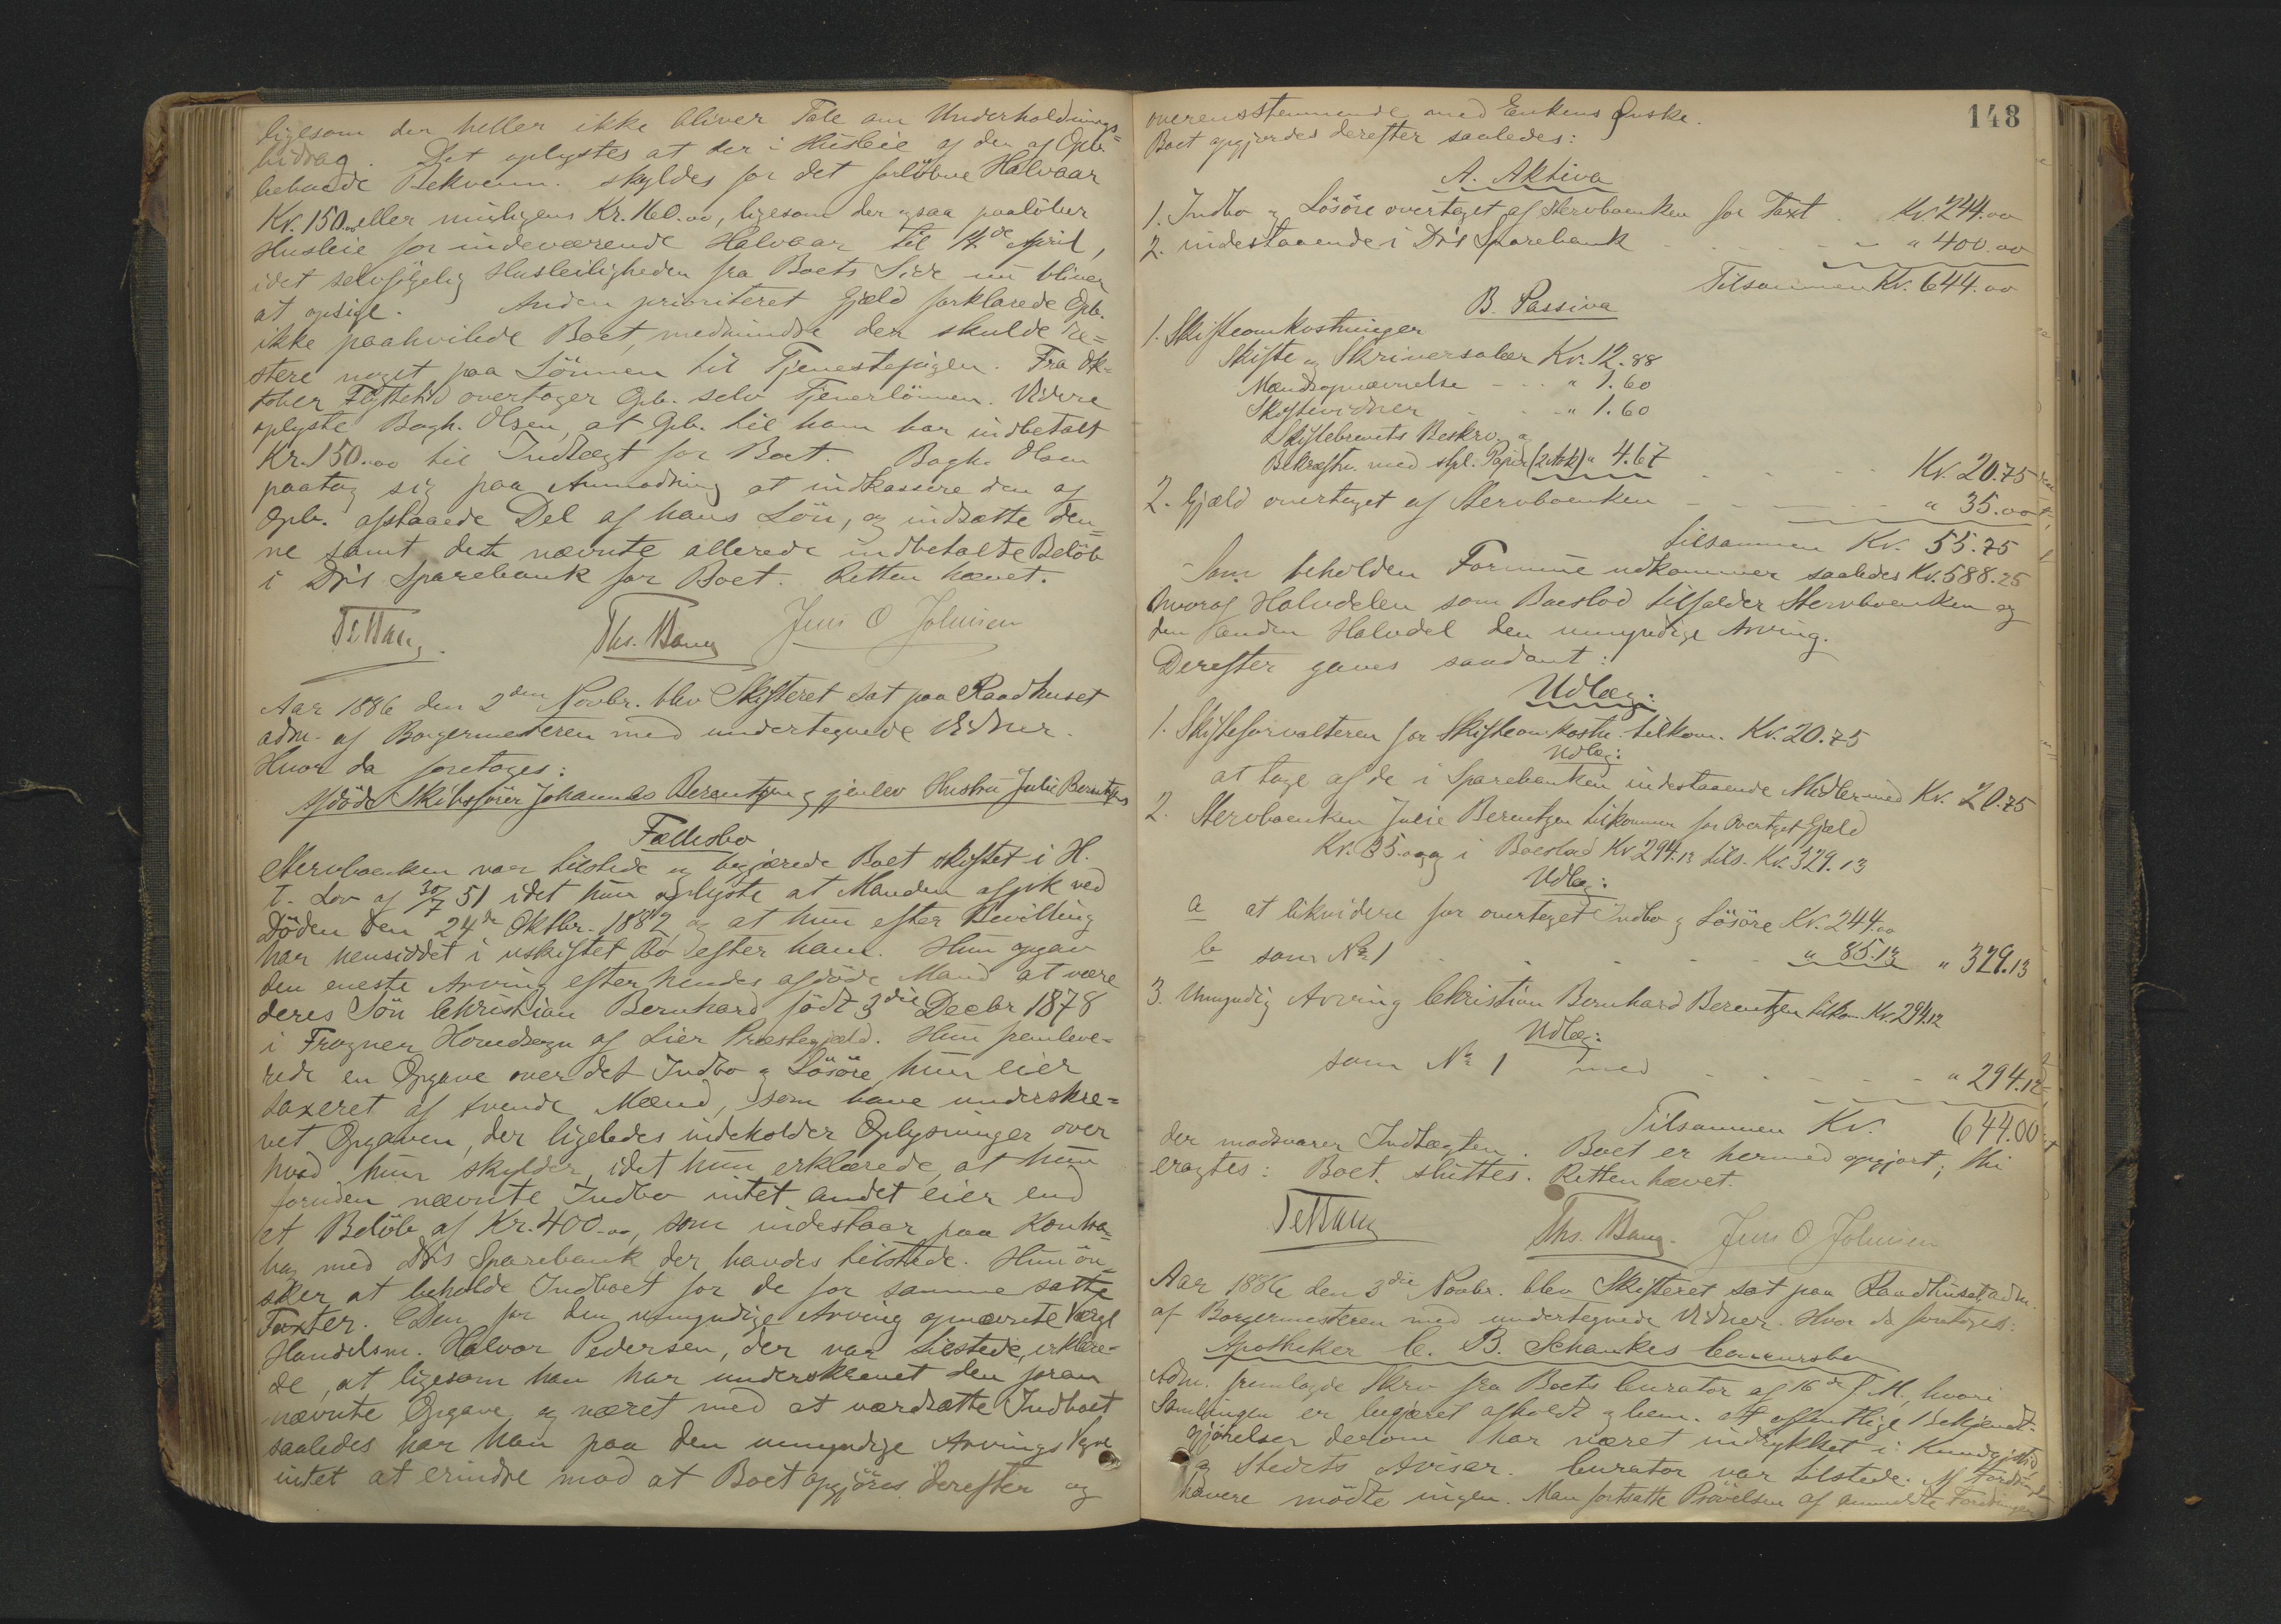 ligesom der heller ikke bliver Tale om Underholdnings=
bidrag. Det oplystes at der i Husleie af den af Opb.
beboede Bekvemm. skyldes for det forløbne Halvaar
Kr. 150.00 eller muligens Kr. 160.00, ligesom der ogsaa paaløber
Husleie for indeværende Halvaar til 14de April,
idet selvfølgelig Husleiligheden fra Boets Side nu bliver
at opsige. Anden prioriteret Gjæld forklarede Opb.
ikke paahvilede Boet, medmindre der skulde re=
stere noget paa Lönnen til Tjenestepigen. Fra Ok=
tober Flyttetid overtager Opb. selv Tjenerlönnen. Videre
oplyste Bogh. Olsen, at Opb. til ham har indbetalt
Kr. 150.00 til Indtægt for Boet. Bogh. Olsen
paatog sig paa Anmodning at indkassere den af
Opb. afstaaede Del af hans Lön, og indsætte den=
ne samt det nævnte allerede indbetalte Belöb
i Dr's Sparebank for Boet. Retten hævet.
Ths. Bang Jens O Johnsen
Aar 1886 den 2den Novbr. blev Skifteret sat paa Raadhuset
adm. af Borgermesteren med undertegnede Vidner.
Hvor da foretoges:
Afdöde Skibsförer Johannes Berentzen og gjenlev Hustru Julie Berentzens
Fællesbo
Stervboenken var tilstede og begjærede Boet skiftet i H.
t. Lov af 30/7 51 idet hun oplyste at Manden afgik ved
Döden den 24de Oktbr. 1882, og at hun efter Bevilling
har hensiddet i uskiftet Bo efter ham. Hun opgav
den eneste Arving efter hendes afdöde Mand at være
deres Sön Christian Bernhard födt 3die Decbr 1878
i Frogner Hovedsogn af Lier Præstegjæld. Hun fremleve=
rede en Opgave over det Indbo og Lösöre hun eier
taxeret af tvende Mænd, som have underskre=
vet Opgaven, der ligeledes indeholder Oplysninger over
hvad hun skylder, idet hun erklærede, at hun
foruden nævnte Indbo intet andet eier end
et Belöb af Kr. 400.00, som indestaar paa Kontra=
bog med Dr's Sparebank der havdes tilstede. Hun ön=
sker at beholde Indboet for de for samme satte
Taxter. Den for den umyndige Arving opnævnte Værge
Handelsm. Halvor Pedersen, der var tilstede, erklære=
de, at ligesom han har underskrevet den foran
nævnte Opgave og været med at værdsætte Indboet
saaledes har han paa den umyndige Arvings Vegne
intet at erindre mod at Boet opgjöres derefter og
148
overensstemmende med Enkens Ønske.
Boet opgjordes derefter saaledes:
A. Aktiva
1. Indbo og Lösöre overtaget af Stervboenken for Taxt . Kr. 244.00
2. indestaaende i Dr's Sparebank " 400.00
Tilsammen Kr. 644.00
B. Passiva
1. Skifteomkostninger
Skifte og Skriversalær Kr. 12.88
Mandsopnævnelse " 1.60
Skiftevidner " 1.60
Skiftebrevets Beskriv. og
Bekræftn. med stpl. Papir (2 Ark) " 4.67
Kr. 20.75
2. Gjæld overtaget af Stervboenken " 35.00
tilsammen Kr. 55.75
Som beholden Formue udkommer saaledes Kr. 588.25
hvoraf Halvdelen som Boeslod tilfalder Stervboenken og
den anden Halvdel den umyndige Arving.
Derefter gaves saadant:
Udlæg:
1. Skifteforvalteren for Skifteomkostn. tilkom. Kr. 20.75
Udlæg:
at tage af de i Sparebanken indestaaende Midler med Kr. 20.75
2. Stervboenken Julie Berentzen tilkommer for overtaget Gjæld
Kr. 35.00 og i Boeslod Kr. 294.13 tils. Kr. 329.13
Udlæg:
a at likvidere for overtaget Indbo og Lösöre Kr. 244.00
b som No 1 " 85.13 " 329.13
3. Umyndig Arving Christian Bernhard Berentzen tilkom. Kr. 294.12
Udlæg:
som No 1 med " 294.12
Tilsammen Kr. 644.00
der modsvarer Indtægten. Boet er hermed opgjort; thi
eragtes: Boet sluttes. Retten hævet.
Ths. Bang. Jens O Johnsen
Aar 1886 den 3die Novbr. blev Skifteret sat paa Raadhuset adm.
af Borgermesteren med undertegnede Vidner. Hvor da foretoges:
Apotheker C. B. Schankes Concursbo
Adm. fremlagde Skriv. fra Boets Curator af 16de f. M., hvori
Samlingen er begjæret afholdt og bem. at offentlige Bekjendt=
gjörelser derom har været indrykket i Kundgj.tid.
og Stedets Aviser. Curator var tilstede. Af Fordrings=
havere mödte ingen. Man fortsatte Prövelsen af anmeldte Fordringer